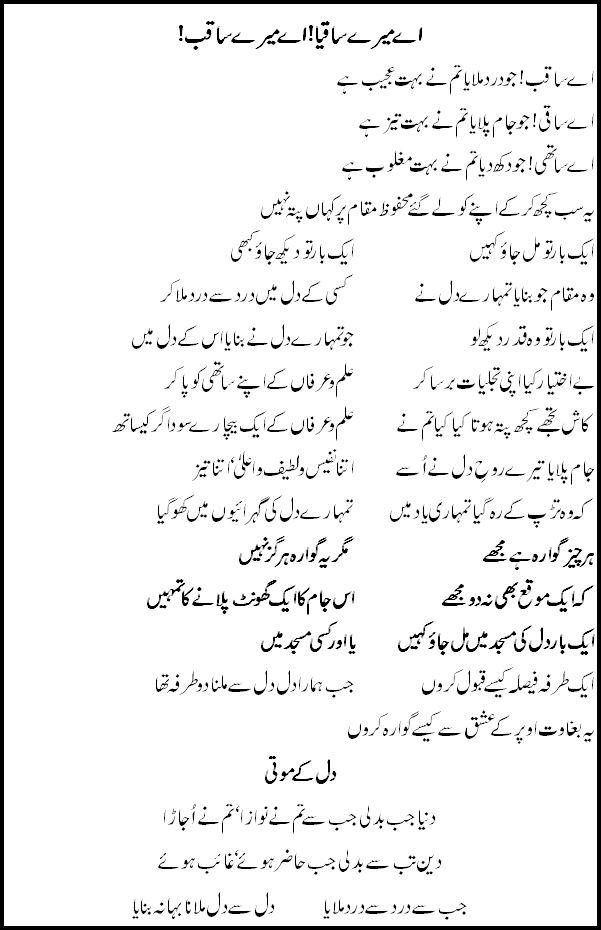 اے میرے ساقیا! اے میرے ساقب!
اے ساقب! جو درد ملایا تم نے بہت عجیب ہے
اے ساقی! جو جام پلایا تم نے بہت تیز ہے
اے ساتھی! جو دکھ دیا تم نے بہت مغلوب ہے
یہ سب کچھ کر کے اپنے کو لے گئے محفوظ مقام پر کہاں پتہ نہیں
ایک بار تو مل جاؤ کہیں ایک بار تو دیکھ جاؤ کبھی
وہ مقام جو بنایا تمہارے دل نے کسی کے دل میں درد سے درد ملا کر
ایک بار تو وہ قدر دیکھ لو جو تمہارے دل نے بنایا اس کے دل میں
بے اختیار کیا اپنی تجلیات برسا کر علم و عرفاں کے اپنے ساتھی کو پا کر
کاش تجھے کچھ پتہ ہوتا کیا کیا تم نے علم و عرفاں کے ایک بیچارے سوداگر کیساتھ
جام پلایا تیرے روح دل نے اُسے اتنا نفیس و لطیف و اعلیٰ‘ اتنا تیز
کہ وہ تڑپ کے رہ گیا تمہاری یاد میں تمہارے دل کی گہرائیوں میں کھو گیا
ہر چیز گوارہ ہے مجھے مگر یہ گوارہ ہرگز نہیں
کہ ایک موقع بھی نہ دو مجھے اس جام کا ایک گھونٹ پلانے کا تمہیں
ایک بار دل کی مسجد میں مل جاؤ کہیں یا اور کسی مسجد میں
ایک طرفہ فیصلہ کیسے قبول کروں جب ہمارا دل دل سے ملنا دو طرفہ تھا
یہ بغاوت اوپر کے عشق سے کیسے گوارہ کروں
دل کے موتی
دنیا جب بدلی جب سے تم نے نوازا‘ تم نے اُجاڑا
دین تب سے بدلی جب حاضر ہوئے‘ غائب ہوئے
جب سے درد سے درد ملایا دل سے دل ملانا بہانہ بنایا